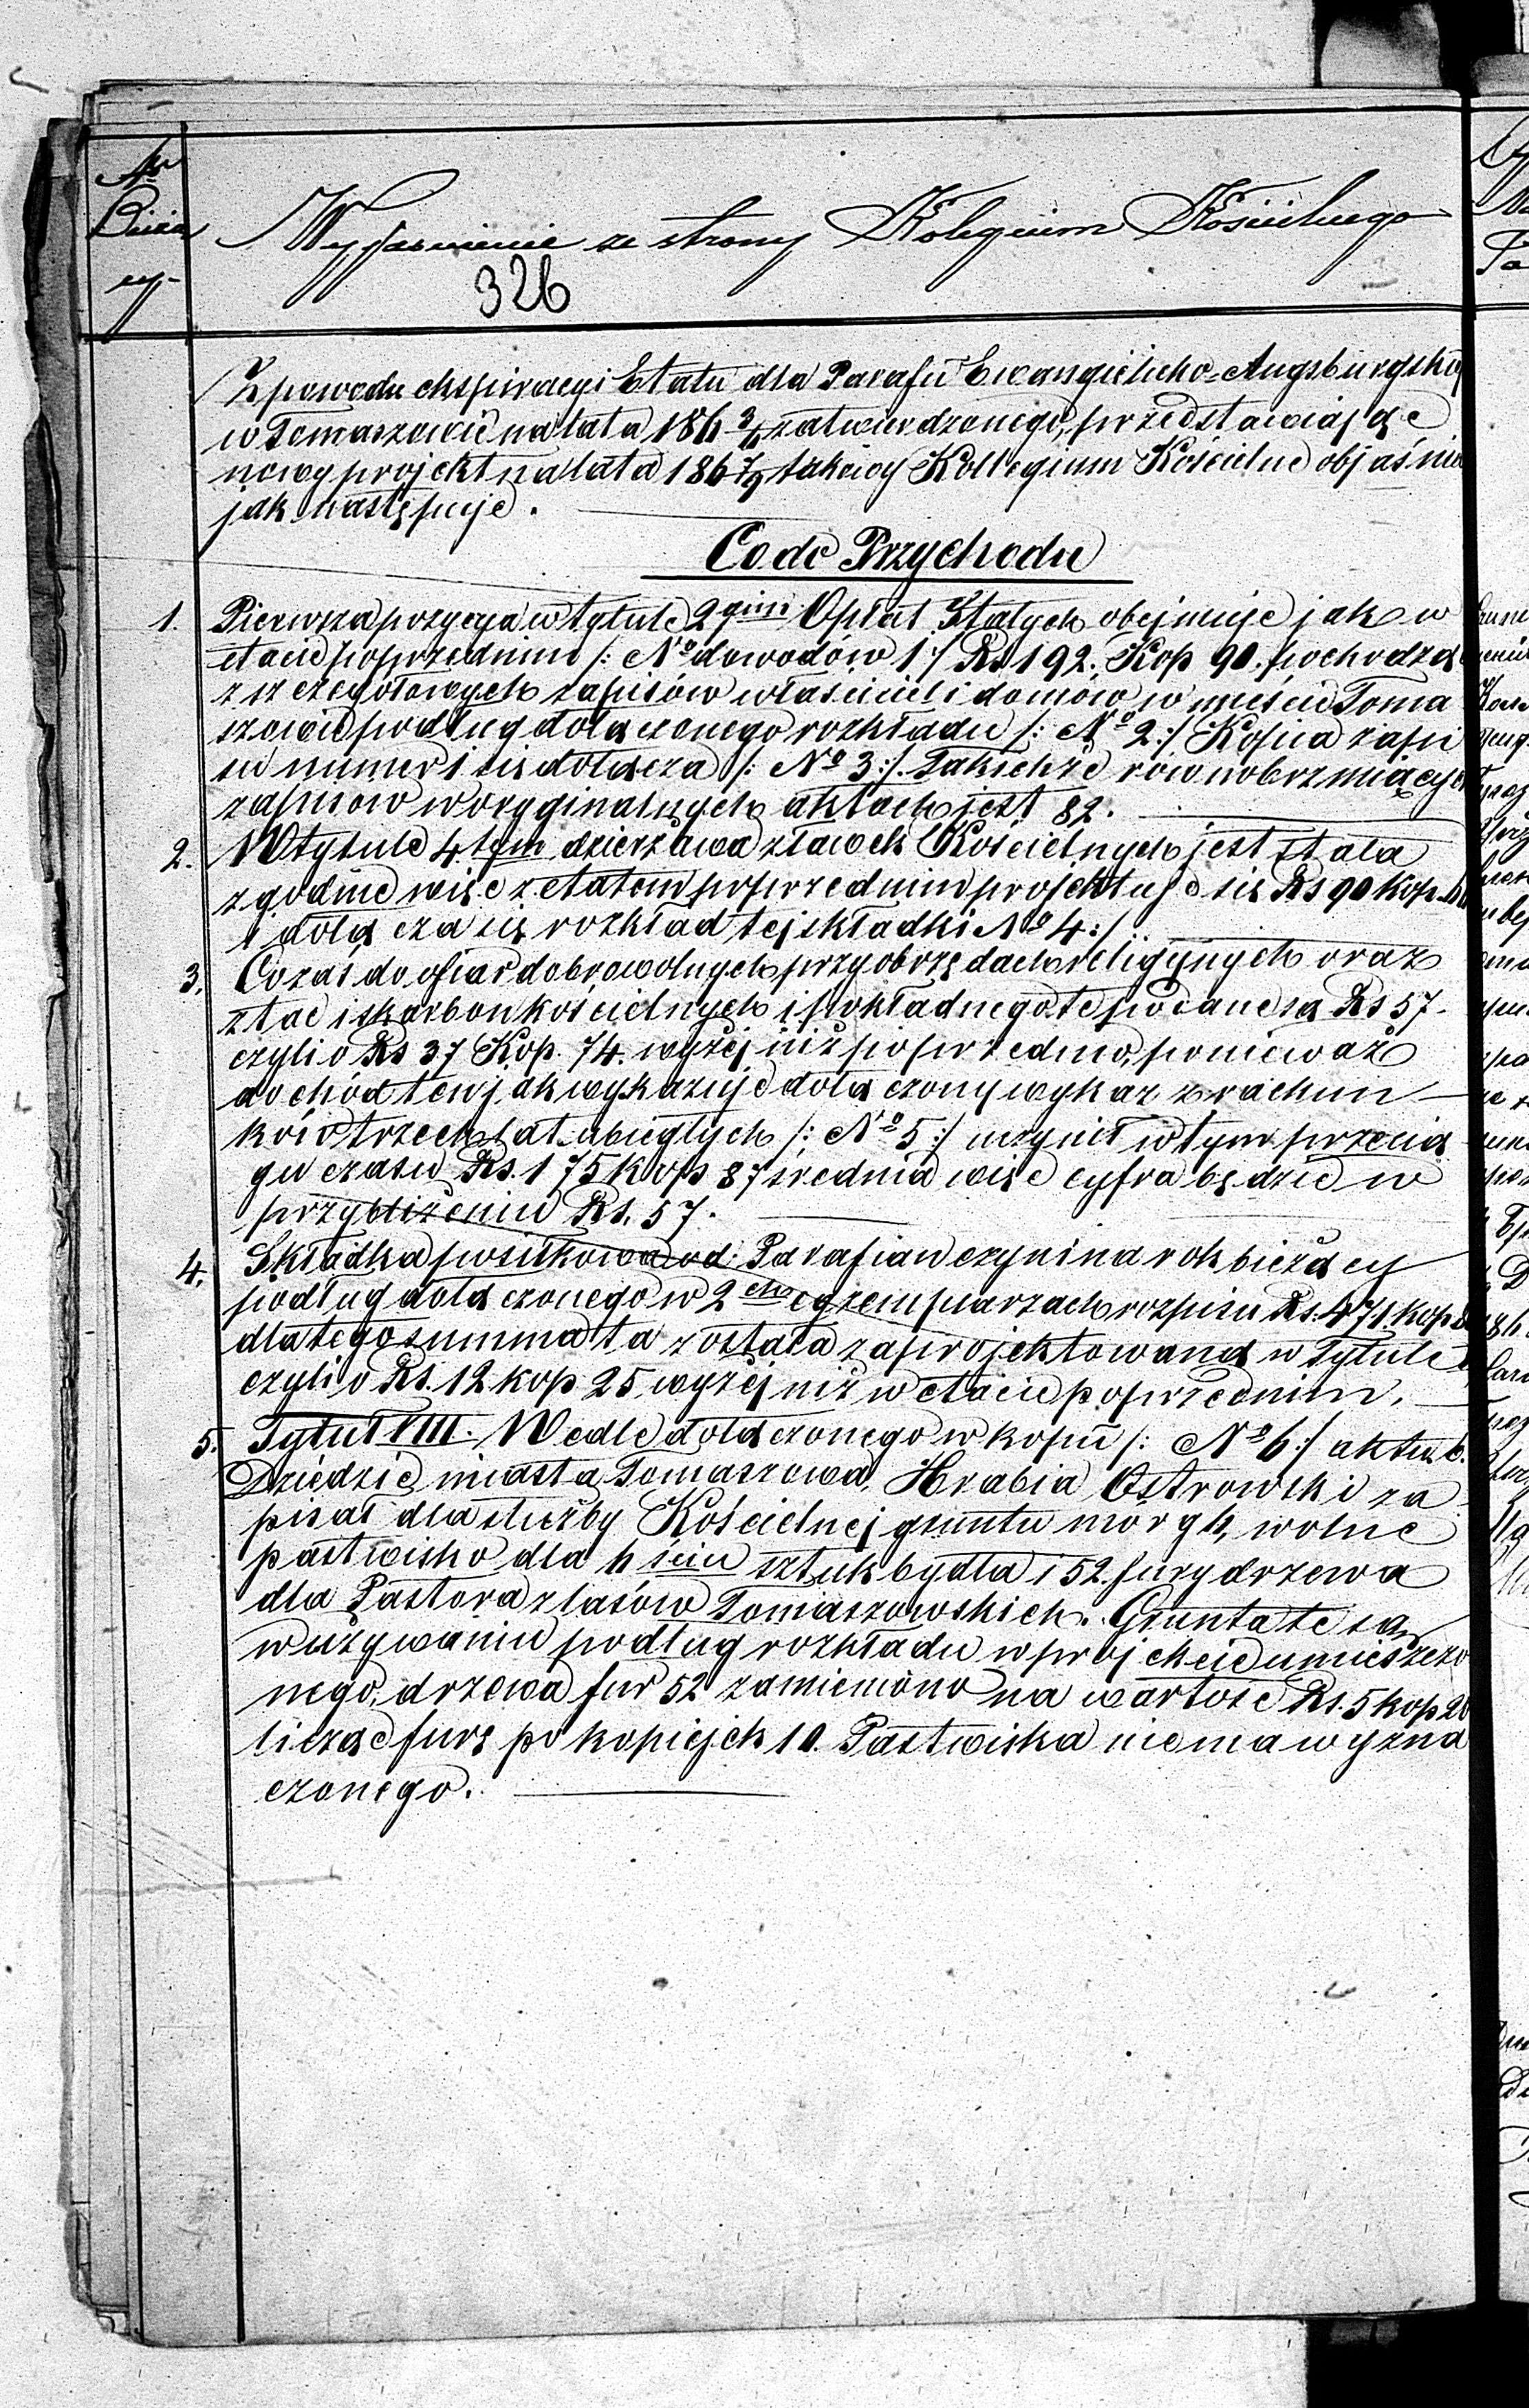 No
Bieżą
cy
Wyjaśnienie ze strony Kolegium Kościelnego
326
Z powodu ekspiracyi Etatu dla Parafii Ewangielicko-Augsburgskiej
w Tomaszowie na lata 186 3/6 zatwierdzonego, przedstawiając
nowy projekt na lata 186 7/9 takowy Kollegium Kościelne objaśnia
jak następuje.
Co do Przychodu
1. Pierwsza pozycya w tytule 2gim Opłat Stałych obejmuje jak w
etacie poprzednim /: No dowodów 1 :/ Rs 192. Kop 90. pochodzą
z szczegółowych zapisów właścicieli domów w mieście Toma
szowie podług dołączonego rozkładu /: No 2 :/ Kopia zapi
su numer 1 się dołącza /: No 3 :/. Takichże równobrzmiących
zapisów w oryginalnych aktach jest 82.
2. W tytule 4tym dzierżawa z ławek Kościelnych jest stała
zgodnie więc z etatem poprzednim projektuje się Rs 90 Kop
i dołącza się rozkład tej składki No 4 :/.
3. Co zaś do ofiar dobrowolnych przy obrzędach religijnych oraz
z tac i skarbon kościelnych i pokładnego te podane są Rs 57.
czyli o Rs 37 Kop. 74. wyżej niż poprzednio, ponieważ
dochód ten jak wykazuje dołączony wykaz z rachun
ków trzech lat ubiegłych /: No 5 :/ uczynił w tym przecią
gu czasu Rs. 175 kop 87 średnia więc cyfra będzie w
przybliżeniu Rs. 57.
4. Składka posiłkowa od Parafian czyni na rok bieżący
podług dołączonego w 2ch egzemplarzach rozpisu Rs. 471. kop
dlatego summa ta została zaprojektowaną w Tytule
czyli o Rs. 12 kop 25 wyżej niż w etacie poprzednim.
5. Tytuł VIII. Wedle dołączonego w kopii /: No 6 :/ aktu b.
Dziedzic miasta Tomaszowa, Hrabia Ostrowski za
pisał dla służby Kościelnej gruntu morg 4, wolne
pastwisko dla 6ściu sztuk bydła i 52 fury drzewa
dla Pastora z lasów Tomaszowskich. Grunta te są
w używaniu podług rozkładu w projekcie umieszczo
nego, drzewa fur 52 zamieniono na wartość Rs. 5 kop 20
licząc furę po kopiejek 10. Pastwiska niema wyzna
czonego.